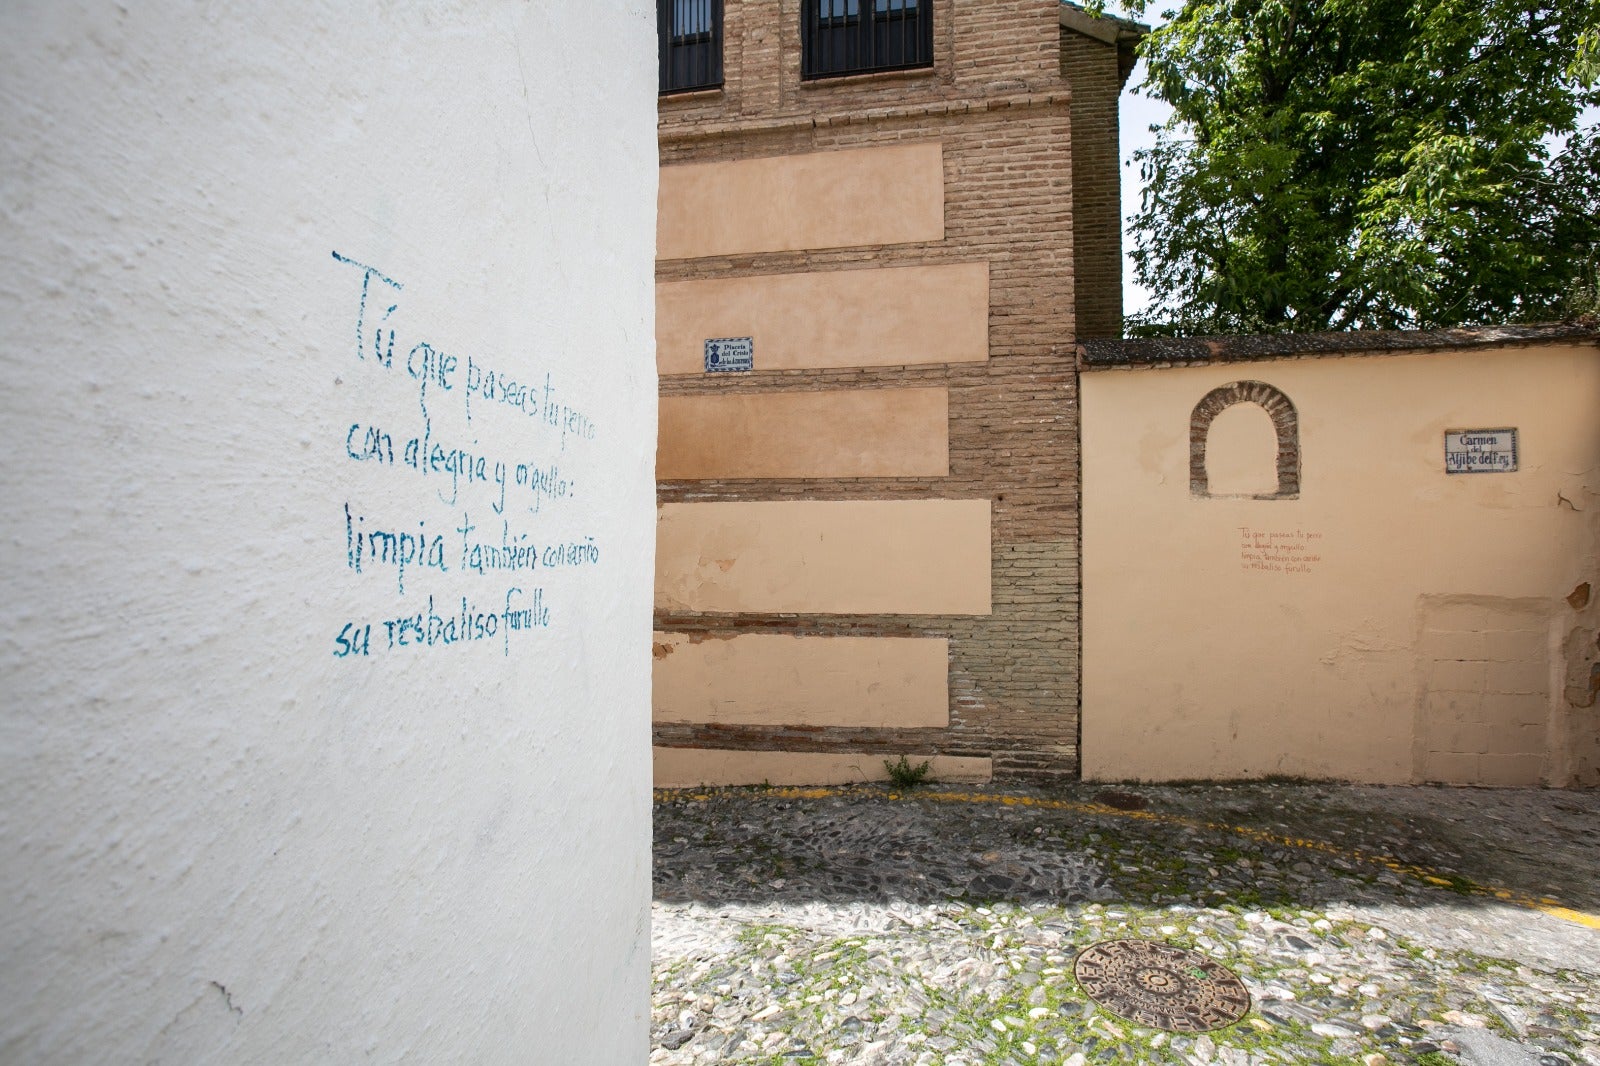 Tú que paseas tu perro
con alegría y orgullo:
limpia también con cariño
su resbaliso furullo
Placeta
del Cristo
de las Azucenas
Carmen
del
Aljibe del Rey
Tú que paseas tu perro
con alegría y orgullo:
limpia también con cariño
su resbaliso furullo